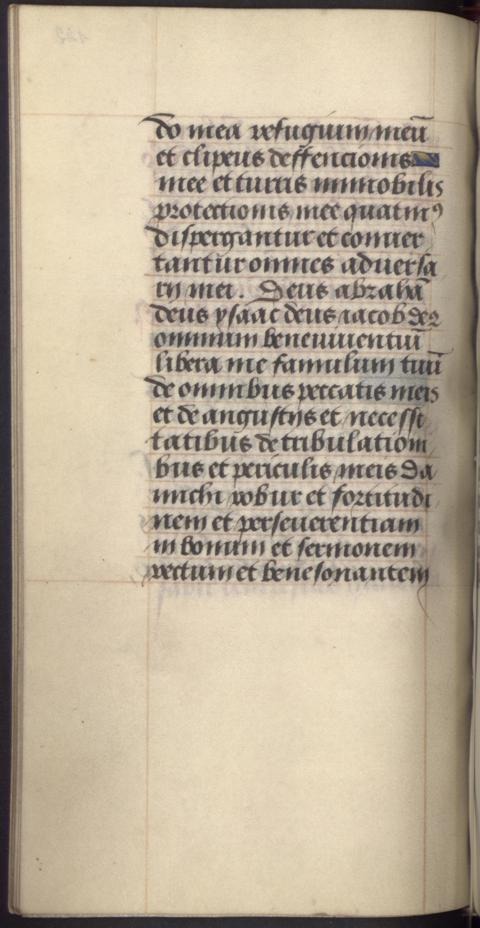 do mea refugium meū
et clipeus deffencionis
mee et turris immobilis
protectionis mee quatinꝰ
dispergantur et conuer
tantur omnes aduersa
rij mei. Deus abrahā
deus ysaac deus iacob deꝰ
omnium beneviuentiū
libera me famulum tuū
de omnibus peccatis meis
et de angustijs et necessi
tatibus de tribulationi
bus et periculis meis Da
michi robur et fortitudi
nem et perseuerentiam
in bonum et sermonem
rectum et benesonantem